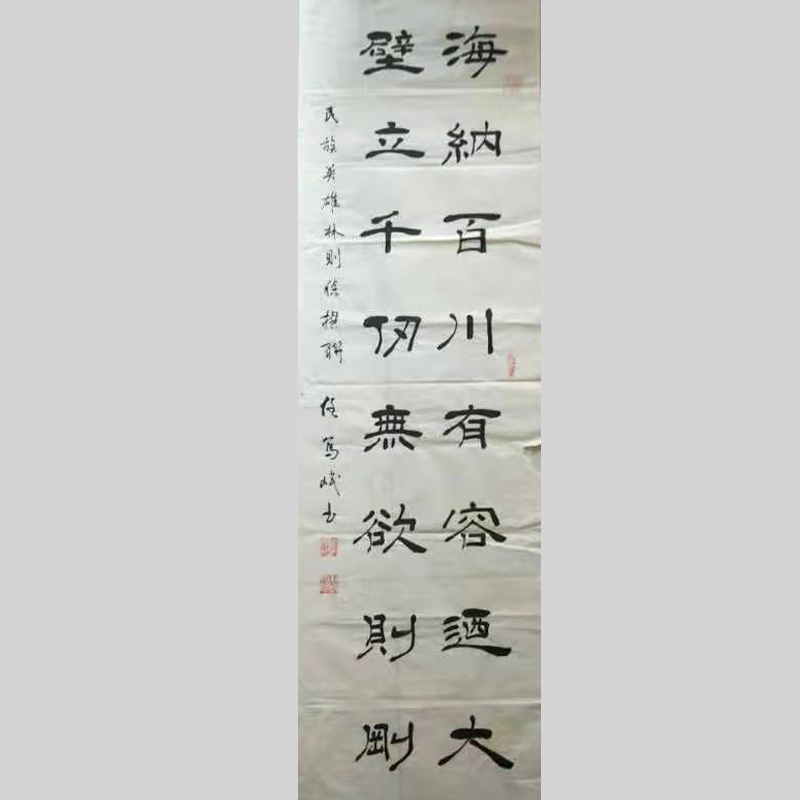 海納百川有容迺大
壁立千仞無欲則剛
民族英雄林則徐撰聯
任篤
書